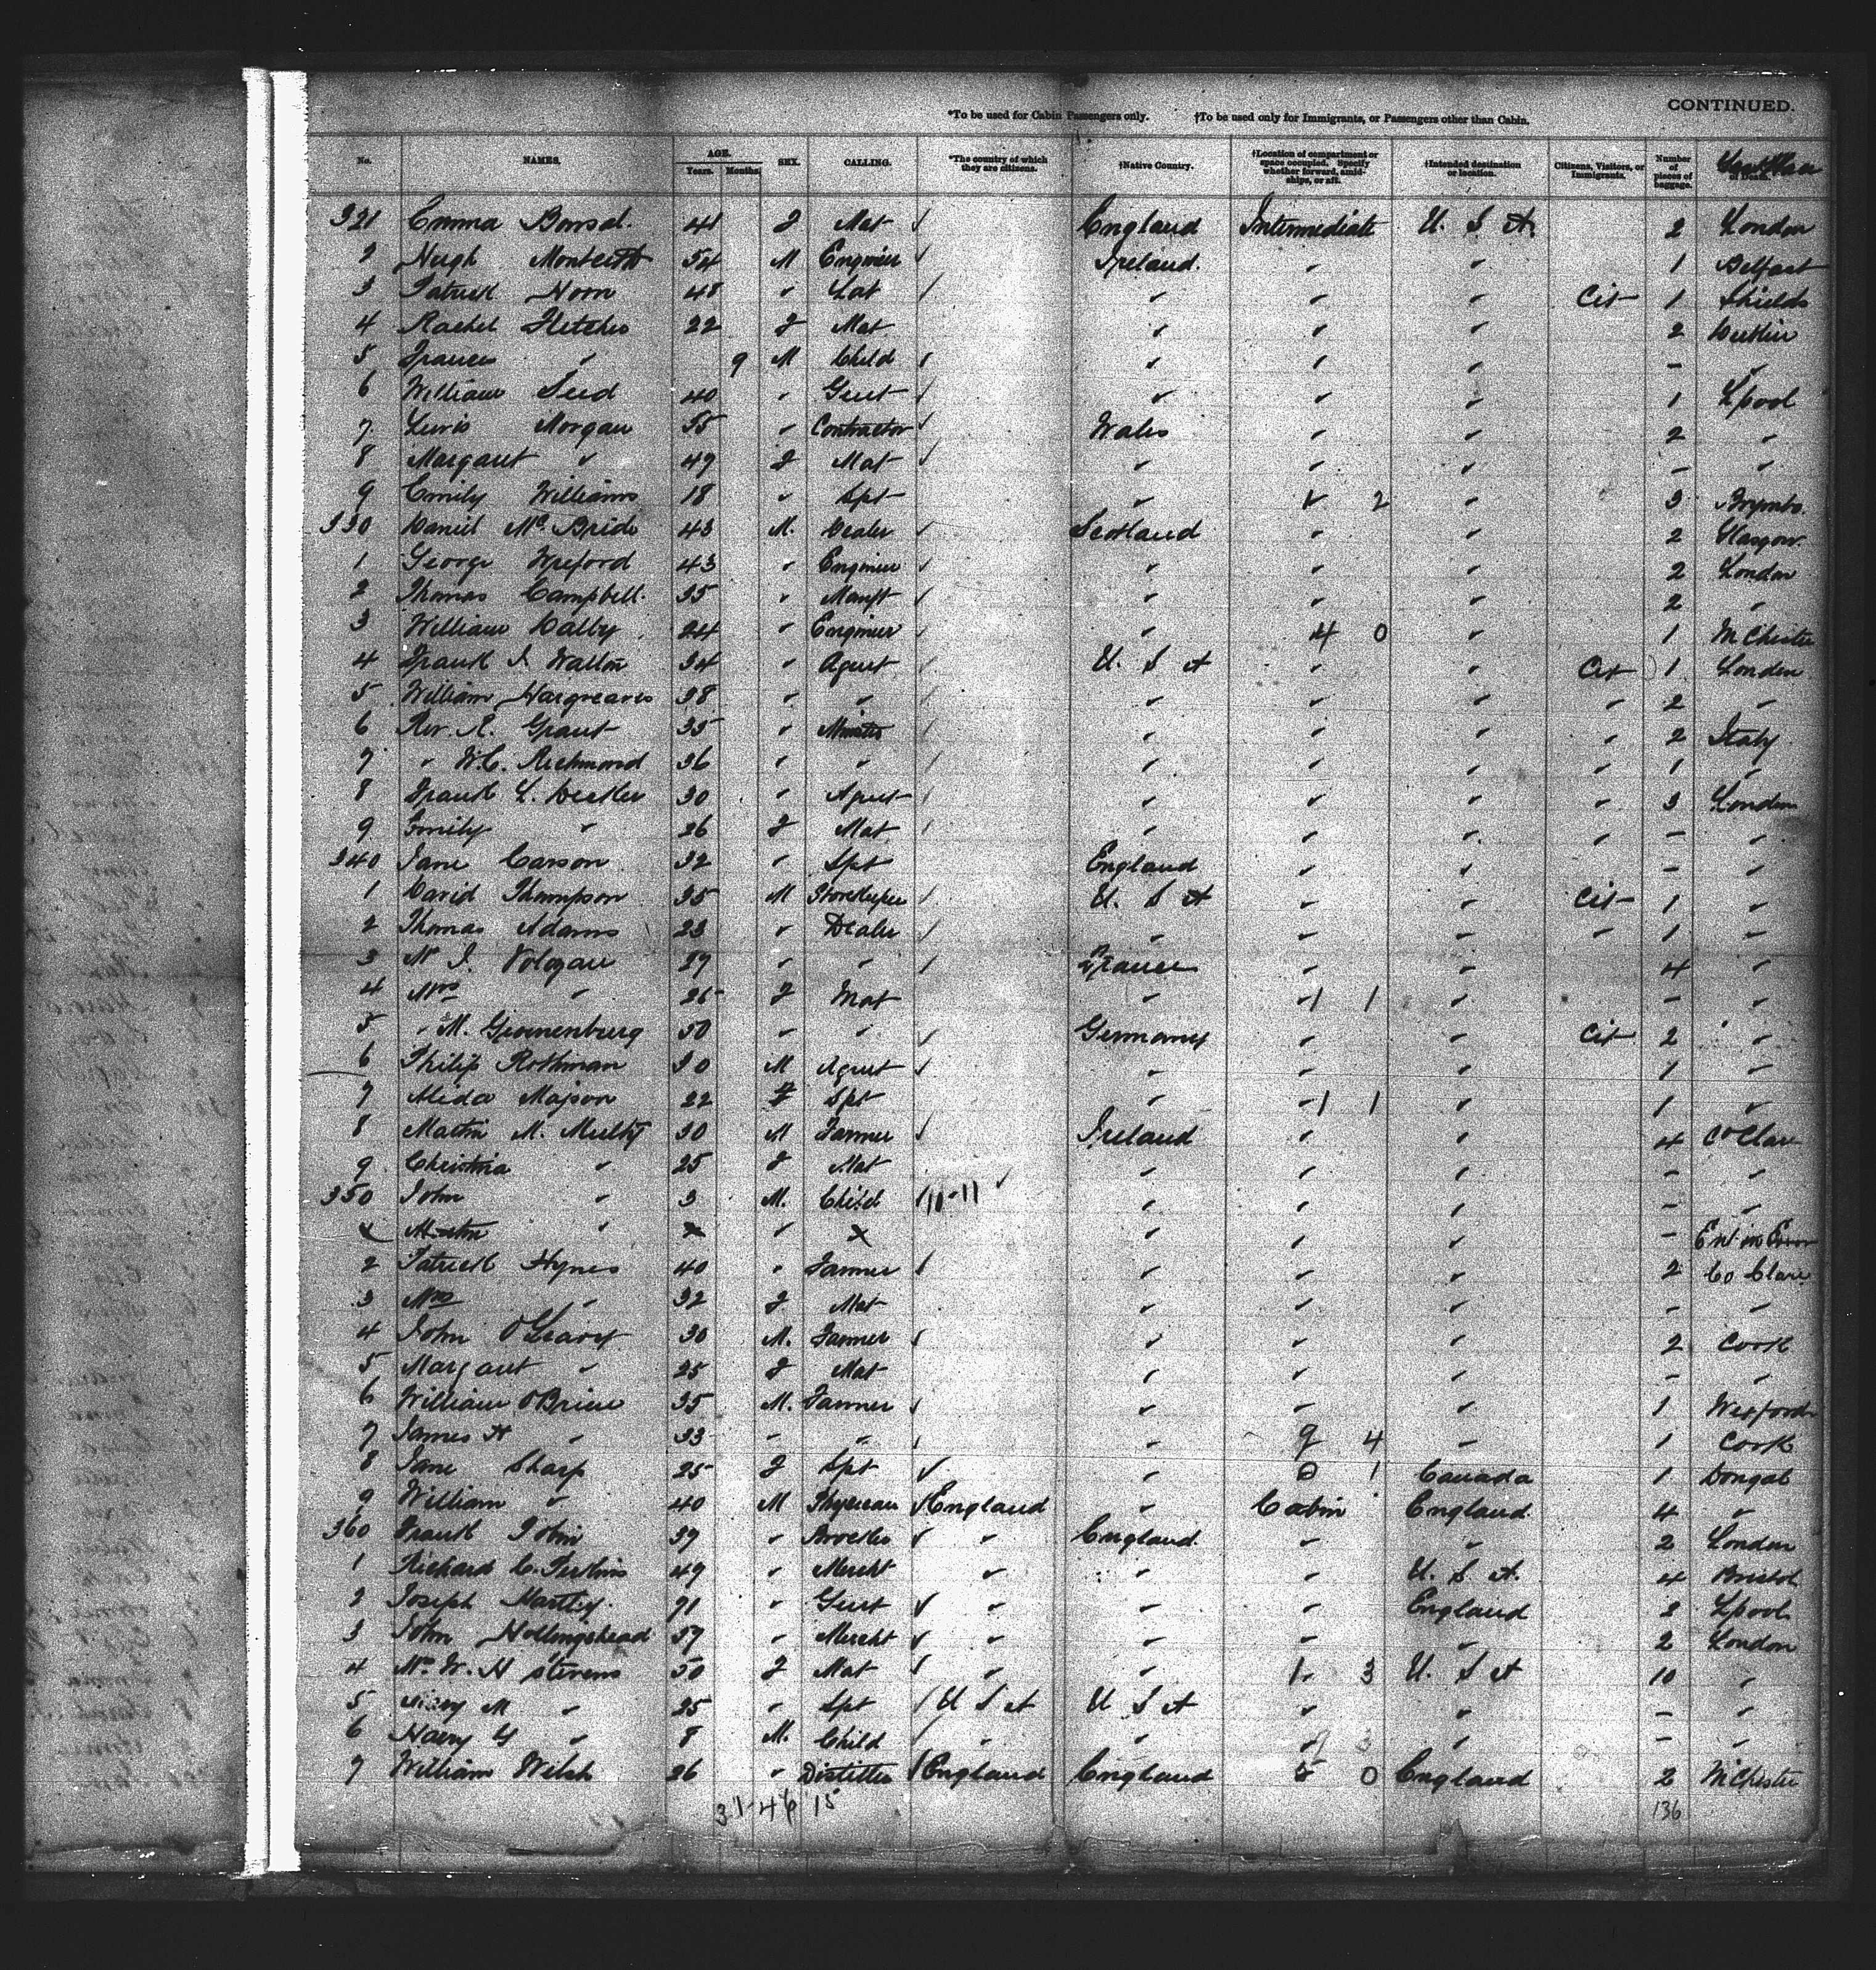 CONTINUED.
*To be used for Cabin Passengers only. †To be used only for Immigrants, or Passengers other than Cabin.
No. NAMES. AGE. Years. Months. SEX. CALLING. *The country of which they are citizens. †Native Country. †Location of compartment or space occupied. Specify whether forward, amidships, or aft. †Intended destination or location. Citizens, Visitors, or Immigrants. Number of pieces of baggage.
321 Emma Bonsal. 41 F Mat England Intermediate U. S. A. 2 London
2 Hugh Monteith 54 M Engineer Ireland. " " 1 Belfast
3 Patrick Noon 48 " Lab " " " Cit 1 Shields
4 Rachel Fletcher 22 F Mat " " " 2 Dublin
5 Frances " 9 M Child " " " - "
6 William Seed 40 " Gent " " " 1 Lpool
7 Lewis Morgan 55 " Contractor Wales " " 2 "
8 Margaret " 49 F Mat " " " - "
9 Emily Williams 18 " Spt " 1 2 " 3 Brymbo.
330 Daniel McBride 43 M. Dealer Scotland " " 2 Glasgow.
1 George Wreford 43 " Engineer " " " 2 London
2 Thomas Campbell. 35 " Manft " " " 2 "
3 William Dalby 24 " Engineer " 4 0 " 1 M Chester
4 Frank J. Walton 34 " Agent U. S A " " Cit 1 London
5 William Hargreaves 38 " " " " " " 2 "
6 Rev. R. Grant 35 " Minister " " " " 2 Italy
7 " W.C. Richmond 36 " " " " " " 1 "
8 Frank L. Decker 30 " Agent " " " " 3 London
9 Emily " 26 F Mat " " " " - "
340 Jane Carson 32 " Spt England " " - "
1 David Thompson 35 M Storekeeper U. S A " " Cit 1 "
2 Thomas Adams 23 " Dealer " " " " 1 "
3 M J. Vologau 37 " " France " " 4 "
4 Mrs " 26 F Mat " 1 1 " - "
5 " M. Gronenburg 50 " " Germany " " Cit 2 "
6 Philip Rothman 30 M Agent " " " 1 "
7 Alida Majson 22 F Spt " 1 1 " 1 "
8 Martin M. Multy 30 M Farmer Ireland " " 4 Co Clare
9 Christina " 25 F Mat " " " - "
350 John " 3 M. Child 11-11 " " " - "
x Martin " x " x " " " - Ent in Error
2 Patrick Hynes 40 " Farmer " " " 2 Co Clare
3 Mrs " 32 F Mat " " " - "
4 John O'Leary 30 M. Farmer " " " 2 Cork
5 Margaret " 25 F Mat " " " - "
6 William O'Brien 35 M. Farmer " " " 1 Wexford
7 James H " 33 " " " 9 4 " 1 Cork
8 Jane Sharp 25 F Spt " 0 1 Canada 1 Dongal
9 William " 40 M Physician England " Cabin England. 4 "
360 Frank John 39 " Broker " England. " " 2 London
1 Richard C. Perkins 49 " Mercht " " " U. S. A. 4 Bristol
2 Joseph Hartley. 71 " Gent " " " England 3 Lpool
3 John Hollingshead 37 " Mercht " " " " 2 London
4 Mrs W. H Stevens 50 F Mat " " 1 3 U. S A 10 "
5 Mary M " 25 " Spt U S A U S A " " - "
6 Harry G " 8 M. Child " " " " - "
7 William Welsh 26 " Distiller England England 5 0 England 2 M Chester
31-46 15 136